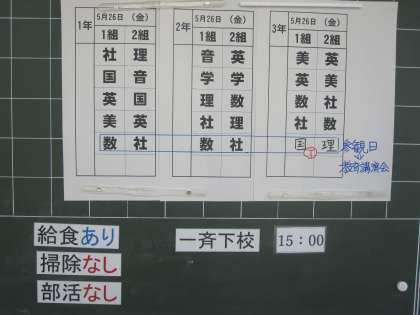 1年 5月26日 (金)
1組 2組
社 理
国 音
英 国
美 英
数 社
2年 5月26日 (金)
1組 2組
音 英
学 学
理 数
社 理
数 社
3年 5月26日 (金)
1組 2組
美 英
英 美
数 社
社 数
国 理
参観日
教育講演会
給食あり
掃除なし
部活なし
一斉下校 15:00